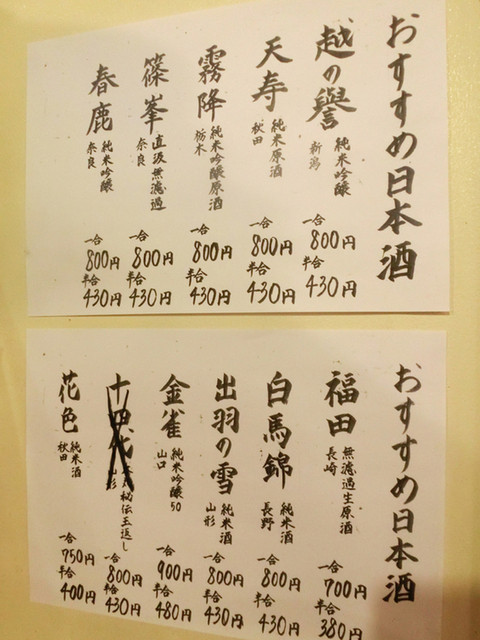 おすすめ日本酒
越の譽 純米吟醸
新潟
一合
800円
半合
430円
天寿 純米原酒
秋田
一合
800円
半合
430円
霧降 純米吟醸原酒
栃木
一合
800円
半合
430円
篠峯 直汲無濾過
奈良
一合
800円
半合
430円
春鹿 純米吟醸
奈良
一合
800円
半合
430円
おすすめ日本酒
福田 無濾過生原酒
長崎
一合
700円
半合
380円
白馬錦 純米酒
長野
一合
800円
半合
430円
出羽の雪 純米酒
山形
一合
800円
半合
430円
金雀 純米吟醸50
山口
一合
900円
半合
480円
十四代 秘伝玉返し
山形
一合
800円
半合
430円
花色 純米酒
秋田
一合
750円
半合
400円